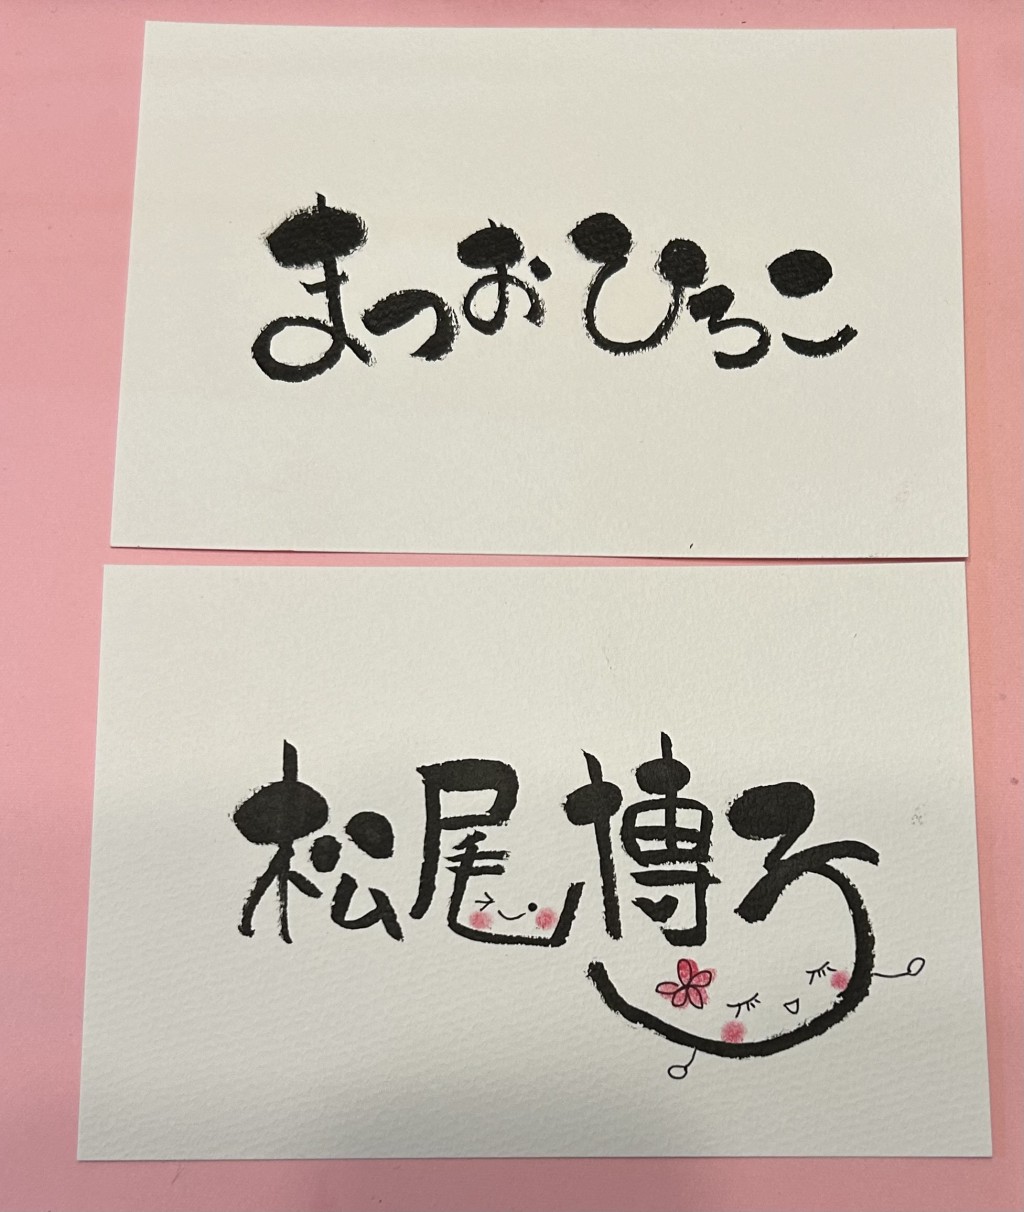 まつおひろこ
松尾博子